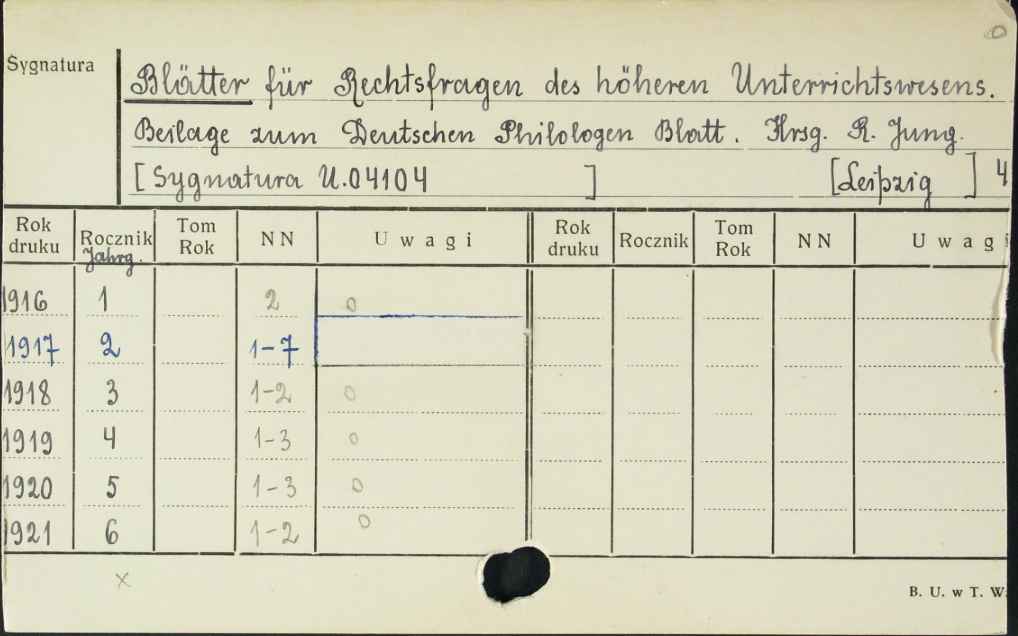 O
Sygnatura
Blätter für Rechtsfragen des höheren Unterrichtswesens.
Beilage zum Deutschen Philologen Blatt. Hrsg. R. Jung.
[Sygnatura U.04104 ] [Leipzig ] 4
Rok druku Rocznik Jahrg. Tom Rok NN Uwagi Rok druku Rocznik Tom Rok NN Uwagi
1916 1 2 o
1917 2 1-7
1918 3 1-2 o
1919 4 1-3 o
1920 5 1-3 o
1921 6 1-2 o
x
B. U. w T. W.